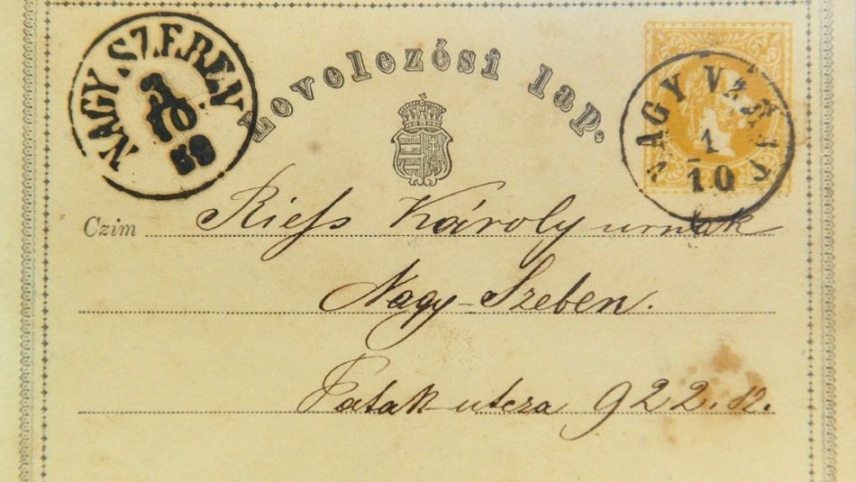 NAGY SZEBEN
3
10
69
Levelezési lap.
NAGY VÁRAD
1
10
Czim Riefs Károly urnak
Nagy-Szeben.
Patak utcza 922. sz.